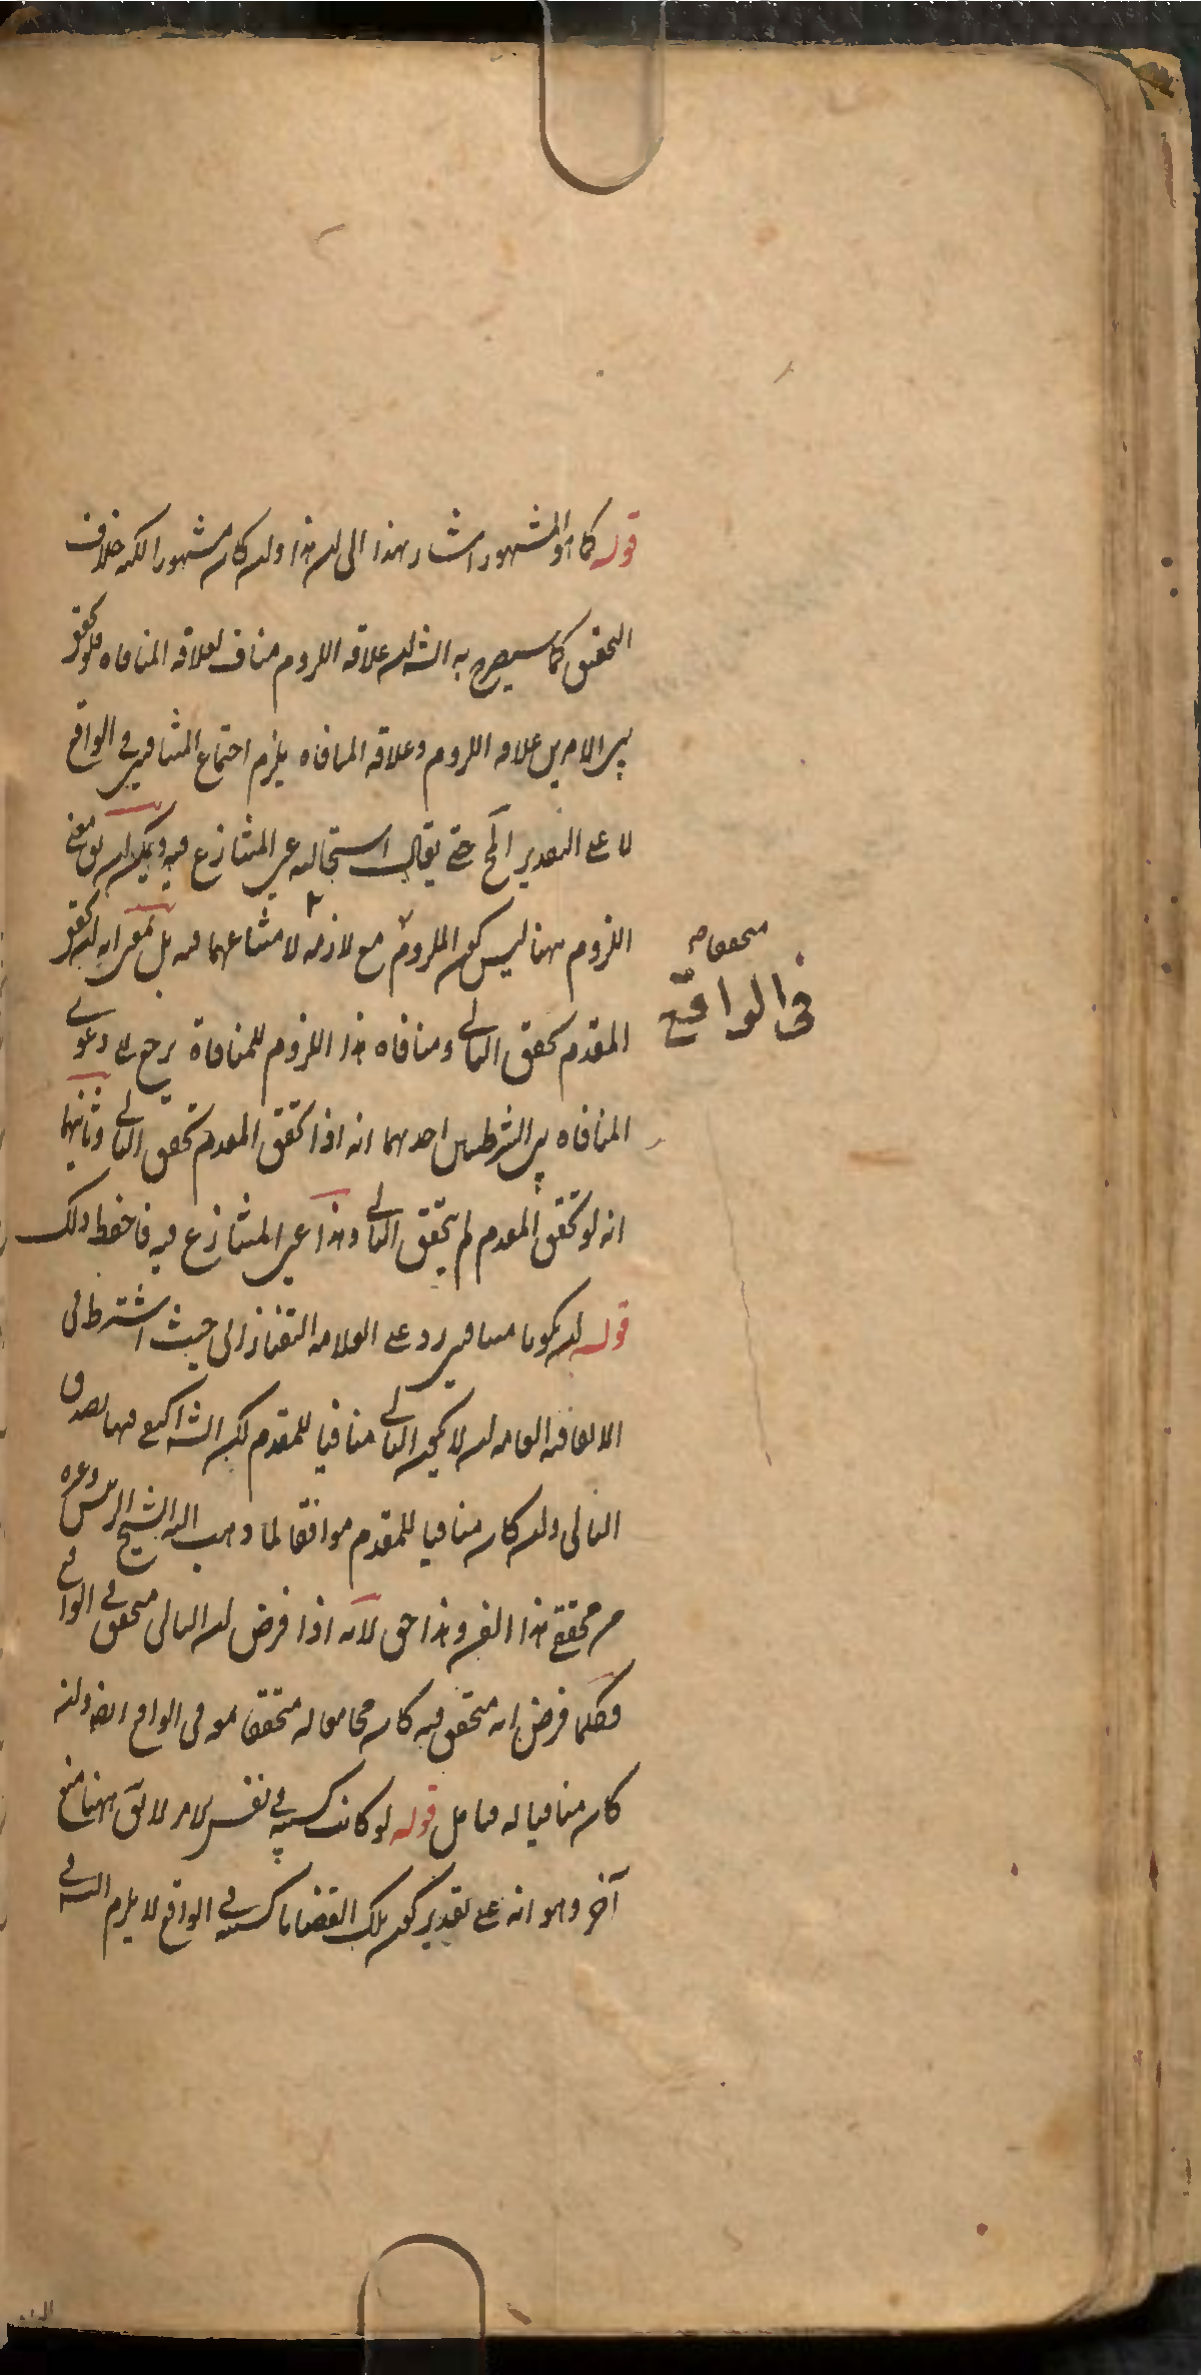 قوله كما هو المشهور اشار بهذا الى ان هذا وان كان مشهورا لكنه خلاف
التحقيق كما سيصرح به الش ان علاقه اللزوم مناف لعلاقه المنافاه فلو تحقق
بين الامرين علاقه اللزوم وعلاقه المنافاه يلزم اجتماع المتنافيين في الواقع
لا على التقدير المح حتى يقال استحالته عين المتنازع فيه ويمكن ان يق معنى
اللزوم ههنا ليس كون الملزوم مع لازمه لامتناعهما فيه بل بمعنى انه لو تحقق
متحققا
في الواقع
المقدم تحقق التالي ومنافاه هذا اللزوم للمنافاة يرجع الى دعوى
المنافاه بين الشرطيين احدهما انه اذا تحقق المقدم تحقق التالي وثانيهما
انه لو تحقق المقدم لم يتحقق التالي وهذا عين المتنازع فيه فاحفظ ذلك
قوله ان يكونا متنافيين رد على العلامه التفتازاني حيث اشترط في
الاتفاقيه العامه ان لا يكون التالي منافيا للمقدم لكن الش اكتفى فيها بصدق
التالي وان كان منافيا للمقدم موافقا لما ذهب اليه الشيخ الرئيس وغيره
من محققي هذا الفن وهذا حق لانه اذا فرض ان التالي متحقق في الواقع
فكلما فرض انه متحقق فيه كان مجامعا له متحققا معه في الواقع ايضا وان
كان منافيا له فتامل قوله لو كانت كسبيه في نفس الامر لا يق ههنا منع
آخر وهو انه على تقدير كون تلك القضايا كسبيه في الواقع لا يلزم